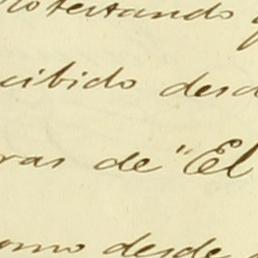 rotestando
cibido desd
ras de "El
omo desde